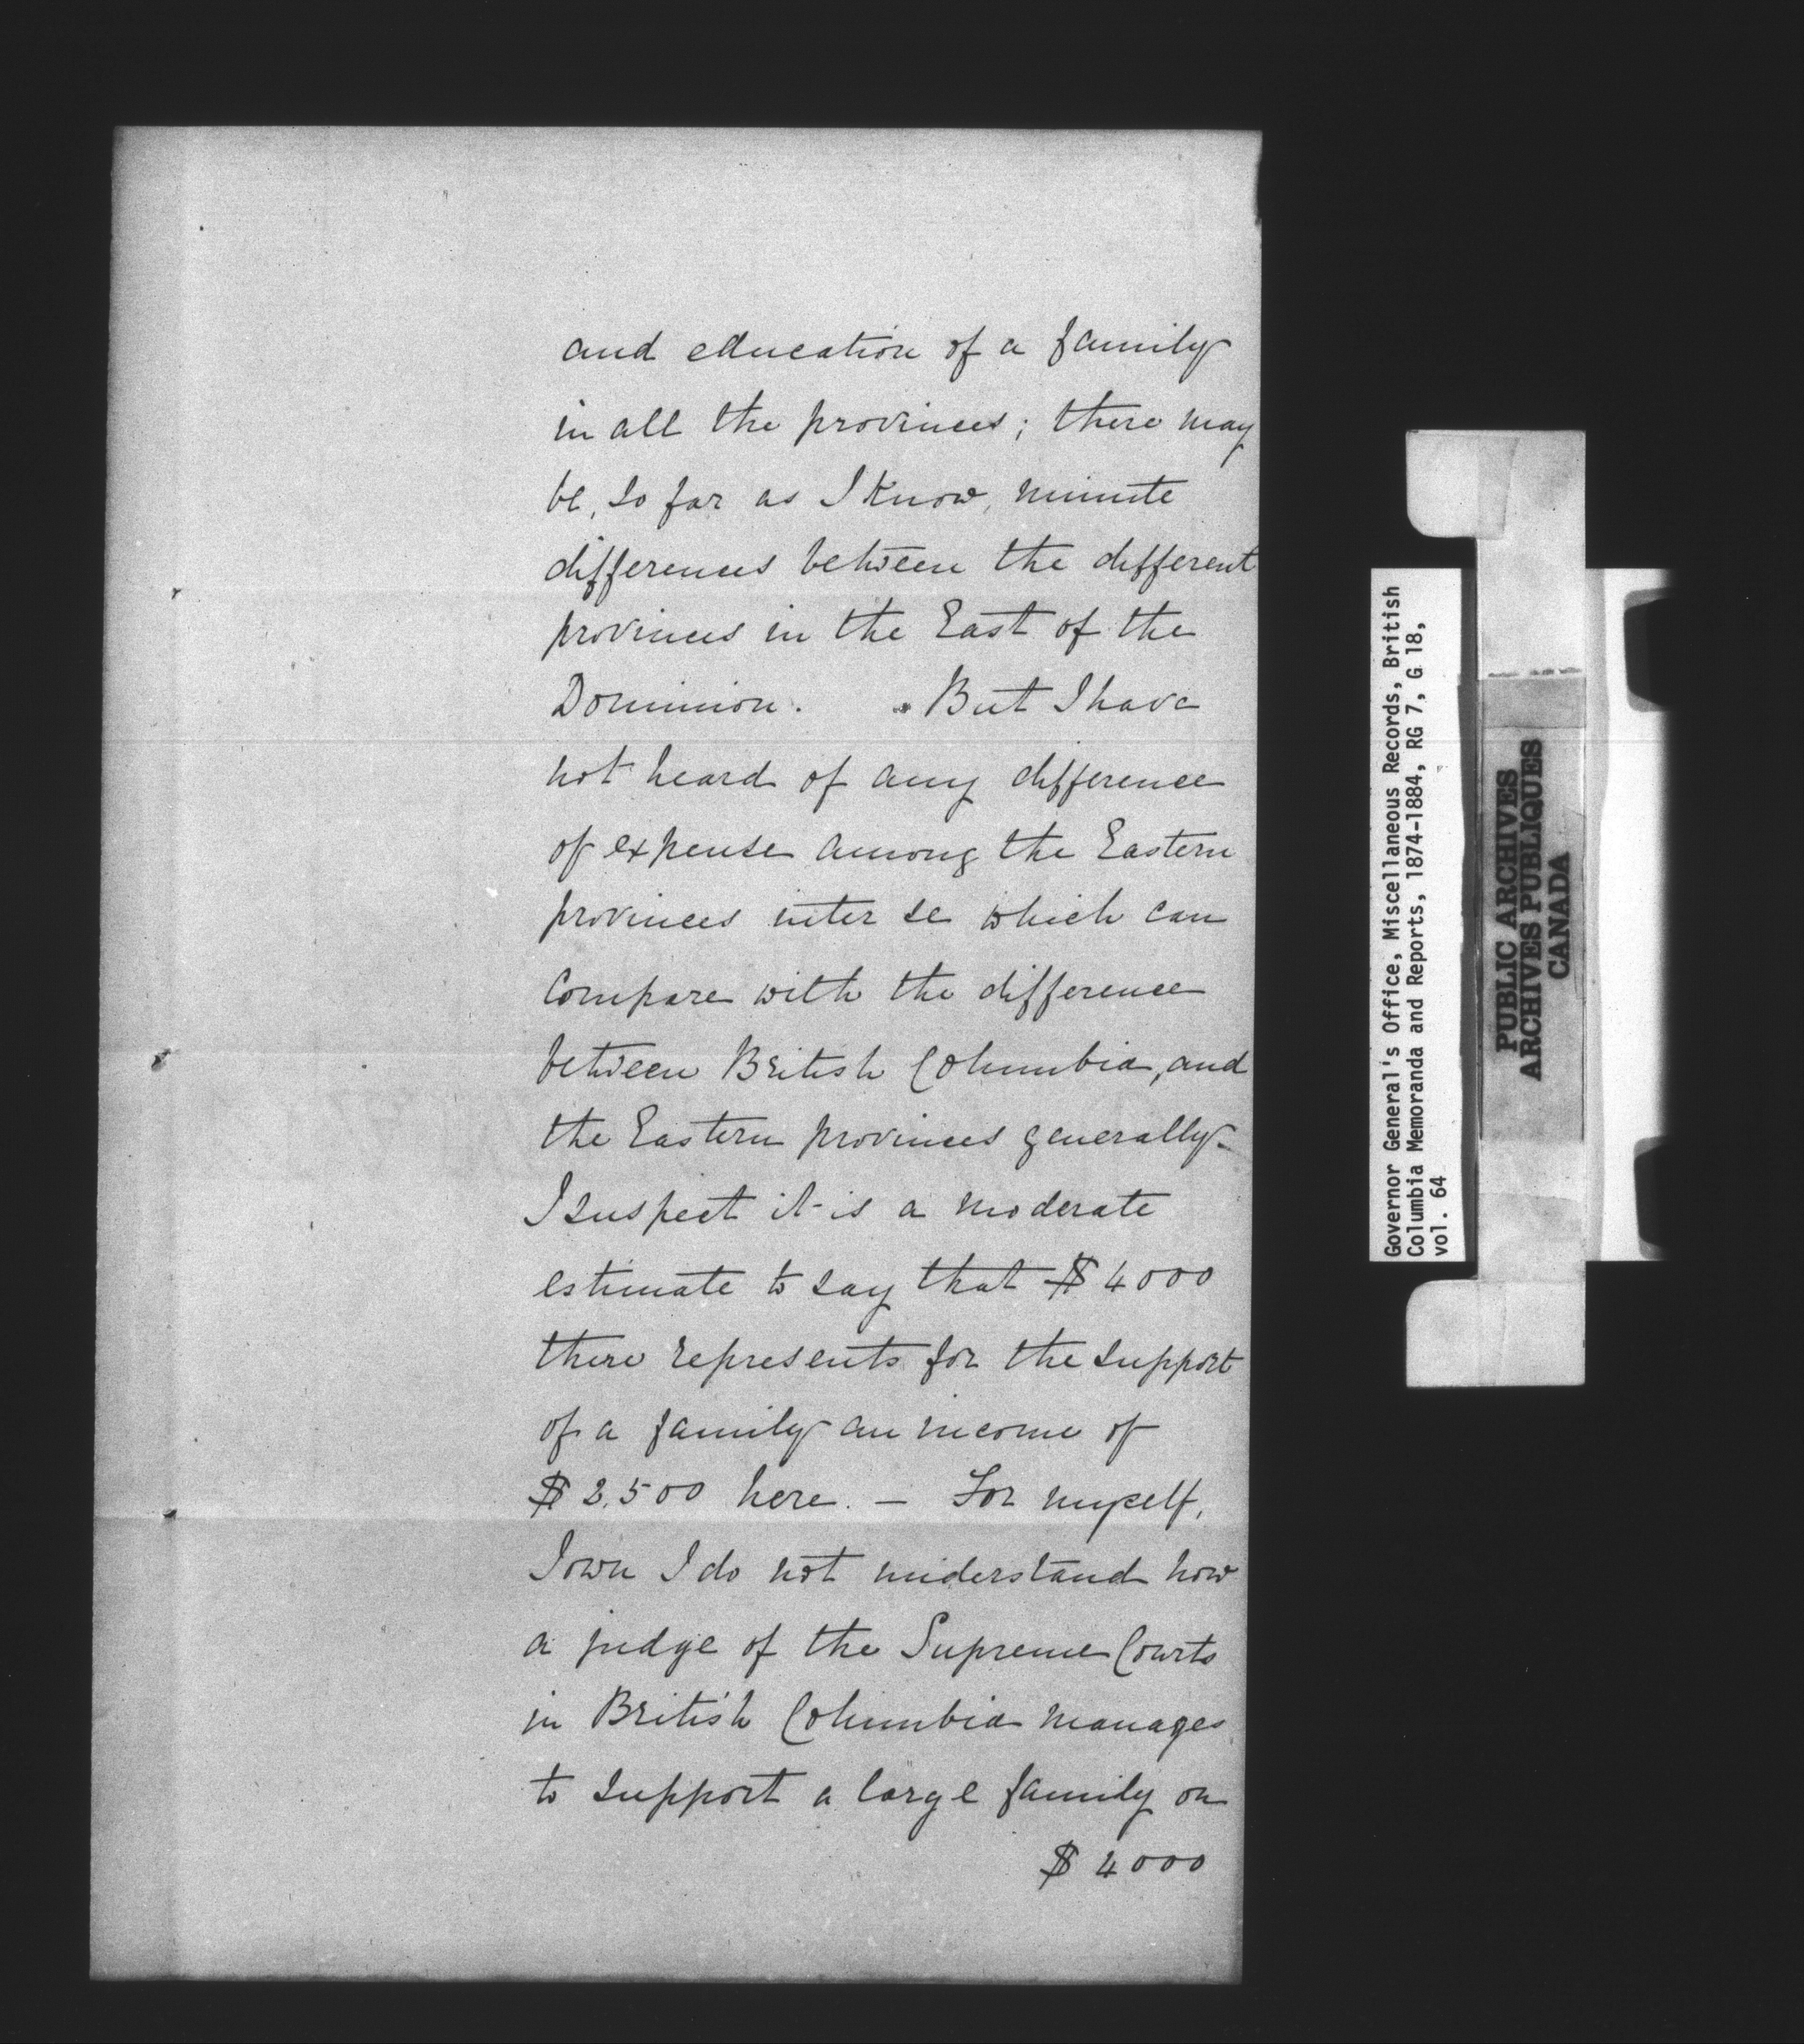 and education of a family
in all the provinces; there may
be, so far as I know, minute
differences between the different
provinces in the East of the
Dominion. But I have
not heard of any difference
of expense among the Eastern
provinces inter se which can
compare with the difference
between British Columbia, and
the Eastern provinces generally.
I suspect it is a moderate
estimate to say that $4000
there represents for the support
of a family an income of
$2,500 here. — For myself,
I own I do not understand how
a judge of the Supreme Courts
in British Columbia manages
to support a large family on
$4000
Governor General's Office, Miscellaneous Records, British
Columbia Memoranda and Reports, 1874-1884, RG 7, G 18,
vol. 64
PUBLIC ARCHIVES
ARCHIVES PUBLIQUES
CANADA